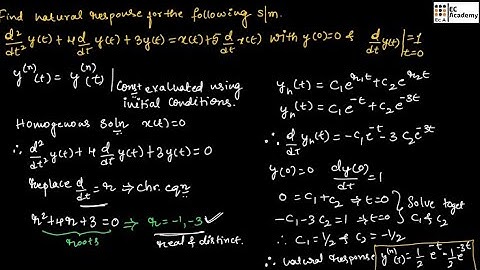 Find natural response for the following s/m.
d²/dt² y(t) + 4 d/dt y(t) + 3y(t) = x(t) + 5 d/dt x(t) with y(0)=0 & d/dt y(t)|t=0 = 1
EC Academy
y⁽ⁿ⁾(t) = y⁽ʰ⁾(t) | const evaluated using
initial conditions.
Homogenous soln x(t)=0
∴ d²/dt² y(t) + 4 d/dt y(t) + 3y(t) = 0
Replace d/dt = r ⇒ chr. eqn
r²+4r+3=0 ⇒ r=-1,-3 ✓
roots real & distinct.
yₕ(t) = c₁e^r₁t + c₂e^r₂t
yₕ(t) = c₁e^-t + c₂e^-3t
∴ d/dt yₕ(t) = -c₁e^-t - 3c₂e^-3t
y(0)=0 dy(0)/dt = 1
0 = c₁+c₂ ⇒ t=0 } Solve to get
-c₁-3c₂ = 1 ⇒ t=0 } c₁ & c₂
∴ c₁ = 1/2 & c₂ = -1/2
∴ natural response y⁽ⁿ⁾(t) = 1/2 e^-t - 1/2 e^-3t